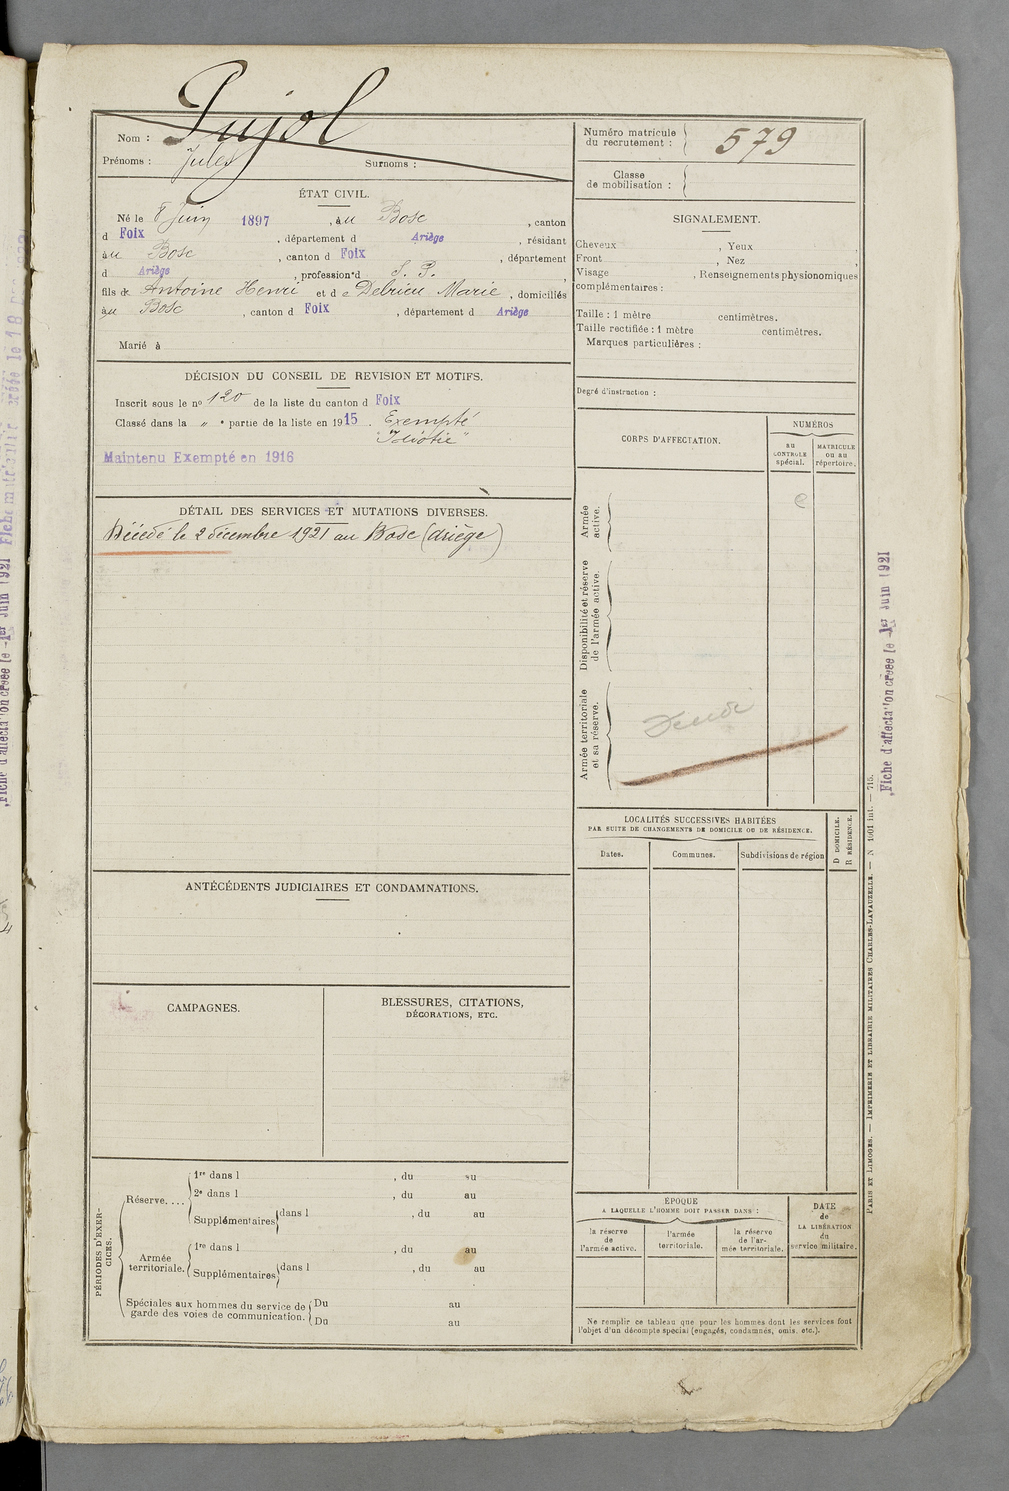 Nom : Pujol
Prénoms : Jules Surnoms :
Numéro matricule du recrutement : 579
Classe de mobilisation :
ÉTAT CIVIL.
Né le 8 Juin 1897, à u Bosc, canton
d Foix, département d Ariège, résidant
à u Bosc, canton d Foix, département
d Ariège, profession d S. P.
fils de Antoine Henri et de Debrieu Marie, domiciliés
à u Bosc, canton d Foix, département d Ariège
Marié à
SIGNALEMENT.
Cheveux , Yeux ,
Front , Nez
Visage , Renseignements physionomiques
complémentaires :
Taille : 1 mètre centimètres.
Taille rectifiée : 1 mètre centimètres.
Marques particulières :
Degré d'instruction :
DÉCISION DU CONSEIL DE REVISION ET MOTIFS.
Inscrit sous le nº 120 de la liste du canton d Foix
Classé dans la „ e partie de la liste en 1915. Exempté
"Idiotie"
Maintenu Exempté en 1916
CORPS D'AFFECTATION.
NUMÉROS
au CONTROLE spécial.
MATRICULE ou au répertoire.
Armée active.
Disponibilité et réserve de l'armée active.
Armée territoriale et sa réserve.
DÉTAIL DES SERVICES ET MUTATIONS DIVERSES.
Décédé le 2 décembre 1921 au Bosc (Ariège)
LOCALITÉS SUCCESSIVES HABITÉES
PAR SUITE DE CHANGEMENTS DE DOMICILE OU DE RÉSIDENCE.
Dates.
Communes.
Subdivisions de région
D DOMICILE.
R RÉSIDENCE.
ANTÉCÉDENTS JUDICIAIRES ET CONDAMNATIONS.
CAMPAGNES.
BLESSURES, CITATIONS,
DÉCORATIONS, ETC.
PÉRIODES D'EXERCICES.
Réserve....
1re dans l , du au
2e dans l , du au
Supplémentaires dans l , du au
Armée territoriale.
1re dans l , du au
Supplémentaires dans l , du au
Spéciales aux hommes du service de garde des voies de communication.
Du au
Du au
ÉPOQUE
A LAQUELLE L'HOMME DOIT PASSER DANS :
la réserve de l'armée active.
l'armée territoriale.
la réserve de l'armée territoriale.
DATE de LA LIBÉRATION du service militaire.
Ne remplir ce tableau que pour les hommes dont les services font
l'objet d'un décompte spécial (engagés, condamnés, omis, etc.).
PARIS ET LIMOGES. — IMPRIMERIE ET LIBRAIRIE MILITAIRES CHARLES-LAVAUZELLE. — N 1001 int. — 715.
Fiche d'affectation créée le 1er Juin 1921
Fiche d'affectation créée le 1er Juin 1921